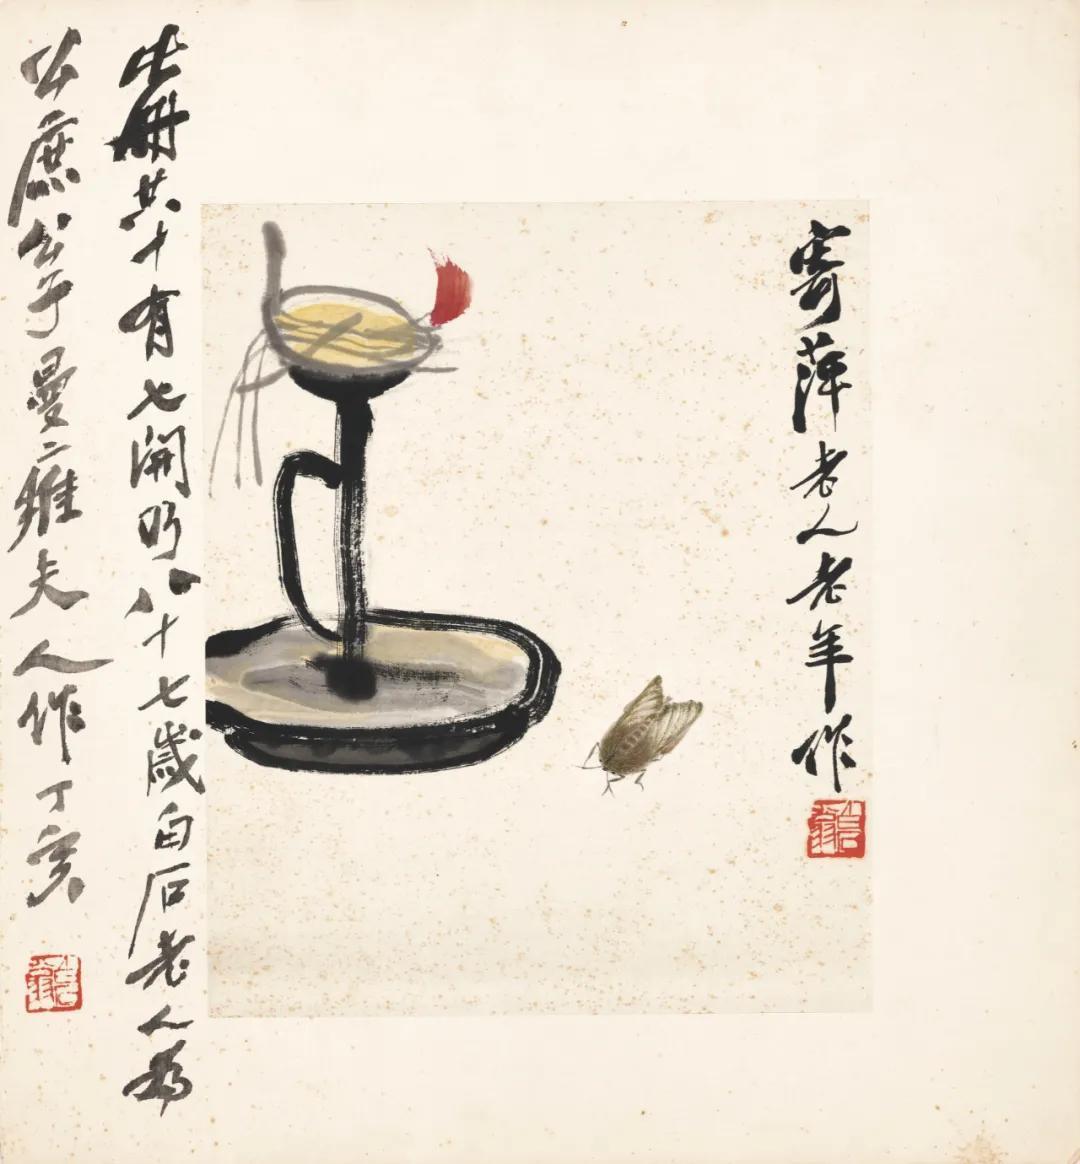 寄萍老人老年作
此冊共十有七開乃八十七歲白石老人為
公庶公子曼夫人作丁亥